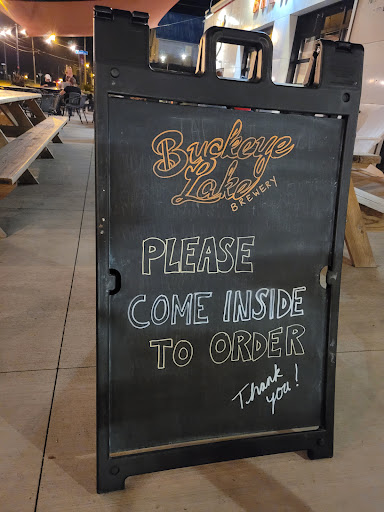 Buckeye
Lake
BREWERY
PLEASE
COME INSIDE
TO ORDER
Thank
you!